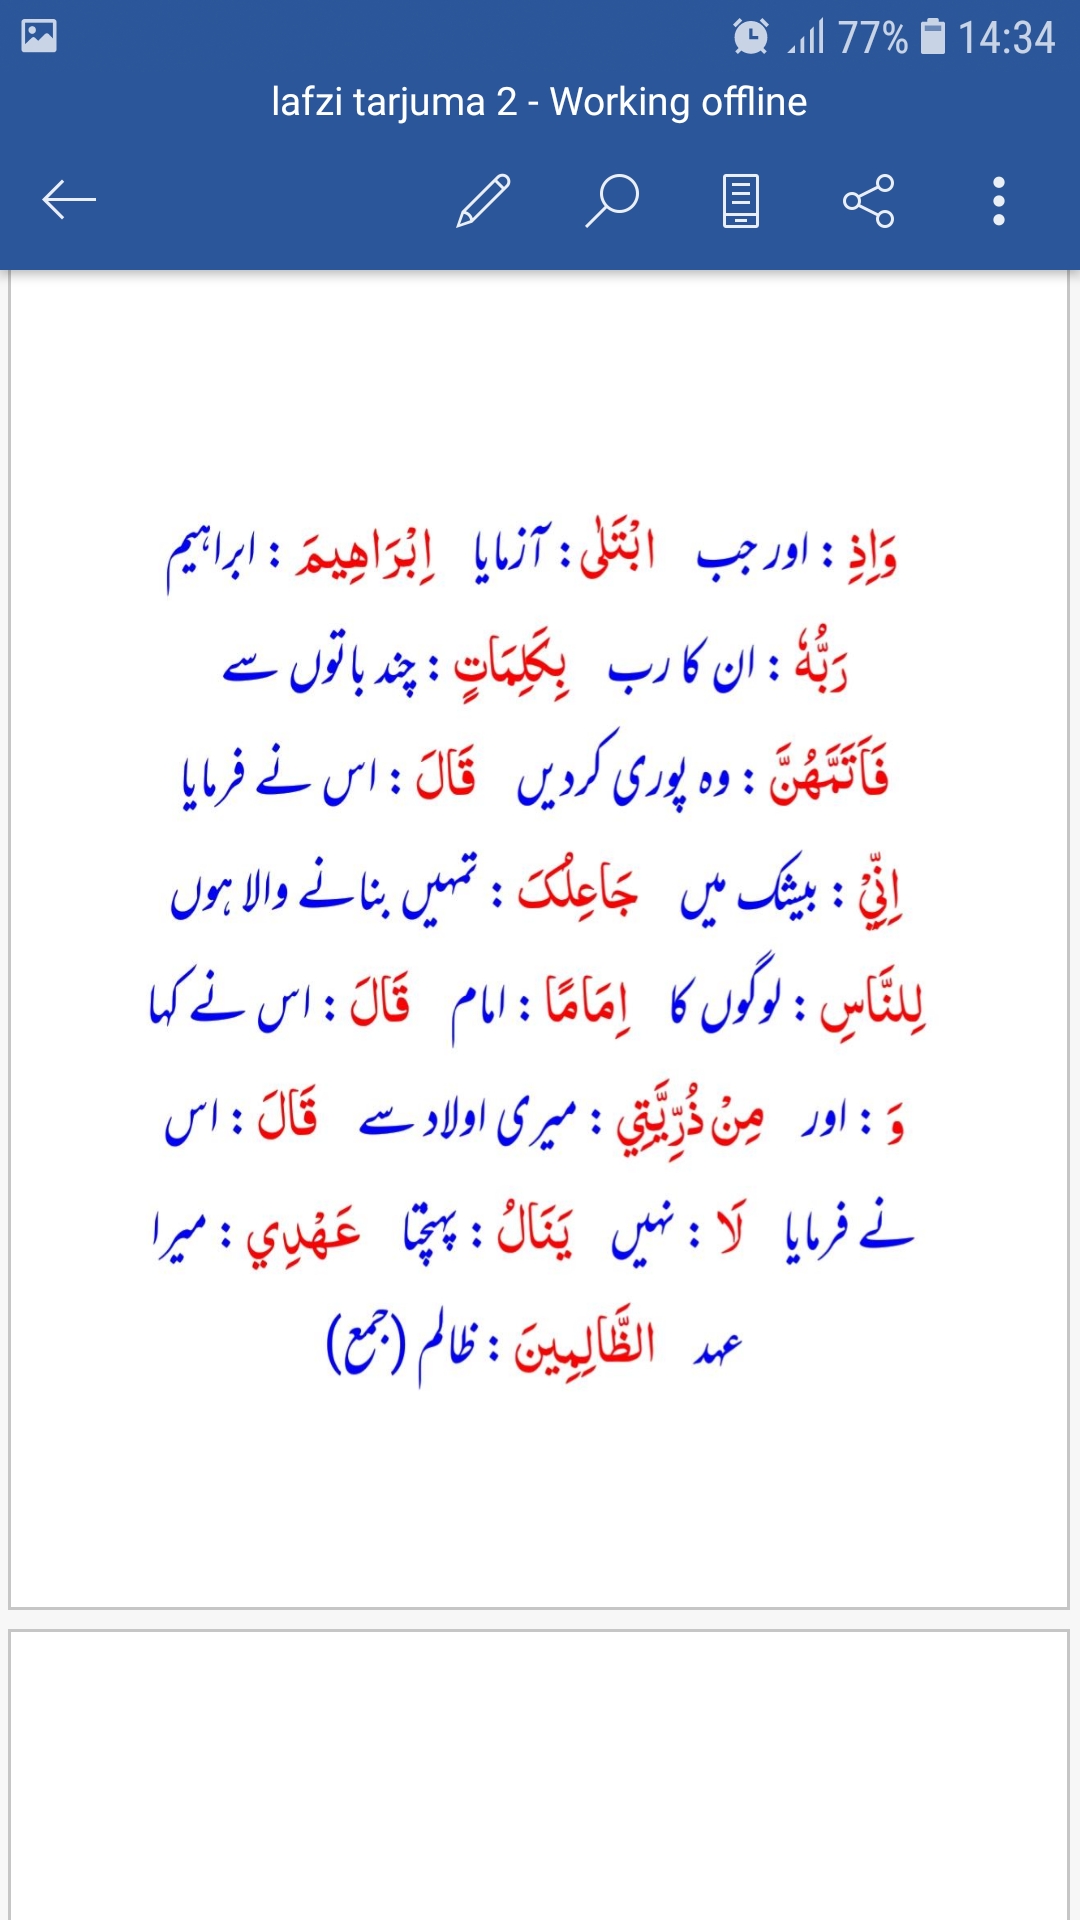 77% 14:34
lafzi tarjuma 2 - Working offline
وَاِذِ : اور جب ابْتَلٰى : آزمایا اِبْرَاهِيمَ : ابراہیم
رَبُّهٗ : ان کا رب بِكَلِمَاتٍ : چند باتوں سے
فَاَتَمَّهُنَّ : وہ پوری کردیں قَالَ : اس نے فرمایا
اِنِّىْ : بیشک میں جَاعِلُكَ : تمہیں بنانے والا ہوں
لِلنَّاسِ : لوگوں کا اِمَامًا : امام قَالَ : اس نے کہا
وَ : اور مِنْ ذُرِّيَّتِي : میری اولاد سے قَالَ : اس
نے فرمایا لَا : نہیں يَنَالُ : پہنچتا عَهْدِي : میرا
عہد الظَّالِمِينَ : ظالم (جمع)